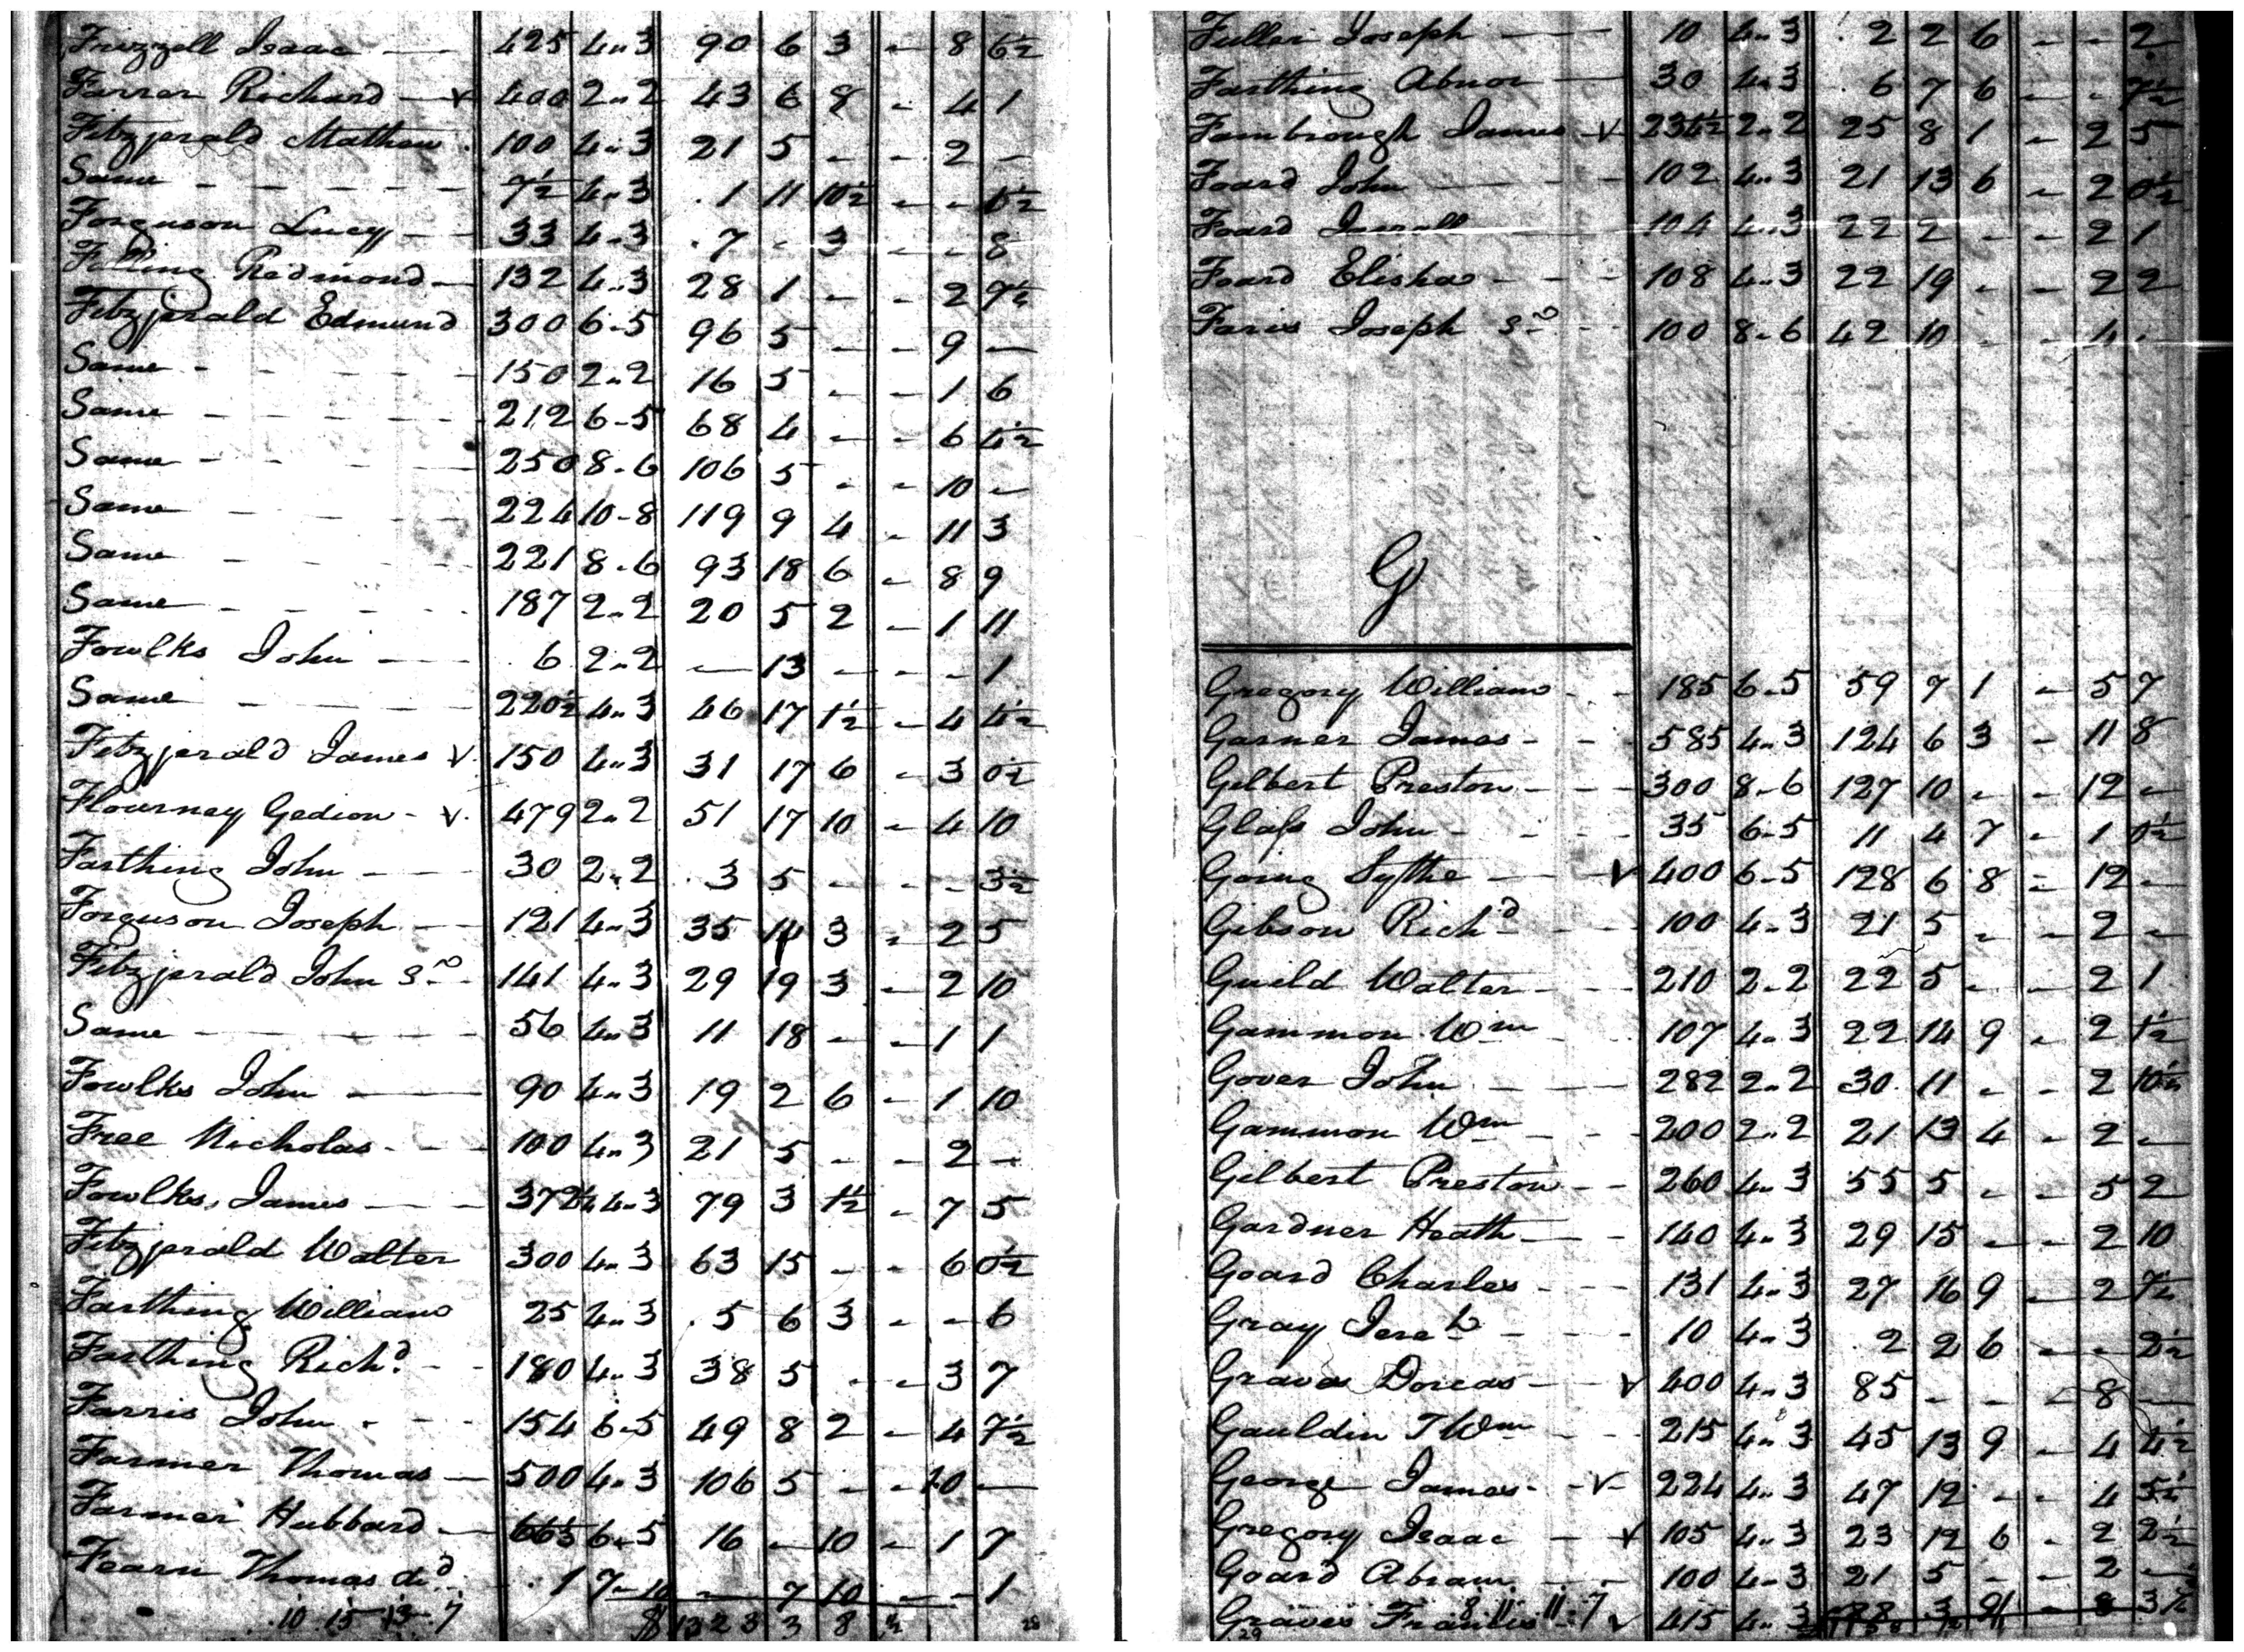 Frizzell Isaac 425 4"3 90 6 3 - 8 6½
Farrar Richard V 400 2"2 43 6 8 - 4 1
Fitzjerald Mathew 100 4"3 21 5 - - 2 -
Same 7½ 4"3 1 11 10½ - -
Forguson Lucy 33 4"3 7 - 3 - - 8
Redmond 132 4"3 28 1 - - 2 7½
Fitzjerald Edmund 300 6-5 96 5 - - 9 -
Same 150 2"2 16 5 - - 1 6
Same 212 6-5 68 4 - - 6 4½
Same 250 8-6 106 5 - - 10 -
Same 224 10-8 119 9 4 - 11 3
Same 221 8-6 93 18 6 - 8 9
Same 187 2"2 20 5 2 - 1 11
Fowlks John 6 2"2 - 13 - - - 1
Same 220½ 4"3 46 17 1½ - 4 4½
Fitzjerald James V 150 4"3 31 17 6 - 3 0½
Flournay Gedion V 479 2"2 51 17 10 - 4 10
Farthing John 30 2"2 3 5 - - - 3½
Forguson Joseph 121 4"3 35 14 3 - 2 5
Fitzjerald John Sr 141 4"3 29 19 3 - 2 10
Same 56 4"3 11 18 - - 1 1
Fowlks John 90 4"3 19 2 6 - 1 10
Free Nicholas 100 4"3 21 5 - - 2 -
Fowlks, James 372½ 4"3 79 3 1½ - 7 5
Fitzjerald Walter 300 4"3 63 15 - - 6 0½
Farthing William 25 4"3 5 6 3 - - 6
Farthing Richd 180 4"3 38 5 - - 3 7
Farris John 154 6-5 49 8 2 - 4 7½
Farmer Thomas 500 4"3 106 5 - - 10 -
Farmer Hubbard 6-5 16 - 10 - 1 7
Fearn Thomas decd 1 7-10 - 7 10 - - 1
10 15 13 7 $ 1323 3 8 ½ 28
Fuller Joseph 10 4"3 2 2 6 - - 2
Farthing Abnor 30 4"3 6 7 6 - - 7½
Fambrough James V 234½ 2"2 25 8 1 - 2 5
Foard John 102 4"3 21 13 6 - 2 0½
Foard 104 4"3 22 2 - - 2 1
Foard Elisha 108 4"3 22 19 - - 2 2
Faris Joseph Sr 100 8-6 42 10 - - 4 -
G
Gregory William 185 6-5 59 7 1 - 5 7
Garner James 585 4"3 124 6 3 - 11 8
Gilbert Preston 300 8-6 127 10 - - 12 -
Glass John 35 6-5 11 4 7 - 1 0½
Going Sythe V 400 6-5 128 6 8 - 12 -
Gibson Richd 100 4-3 21 5 - - 2 -
Guild Walter 210 2-2 22 5 - - 2 1
Gammon Wm 107 4-3 22 14 9 - 2 1½
Gover John 282 2"2 30 11 - - 2 10½
Gammon Wm 200 2"2 21 13 4 - 2 -
Gilbert Preston 260 4"3 55 5 - - 5 2
Gardner Heath 140 4"3 29 15 - - 2 10
Goard Charles 131 4"3 27 16 9 - 2 7½
Gray Jereh 10 4"3 2 2 6 - - 2½
Graves Dorcas V 400 4"3 85 - - - 8 -
Gauldin T Wm 215 4"3 45 13 9 - 4 4½
George James V 224 4"3 47 12 - - 4 5½
Gregory Isaac V 105 4"3 23 12 6 - 2 2½
Goard Abram 100 4-3 21 5 - - 2 -
Graves Francis V 415 4"3 3½
8 11 11 7
29